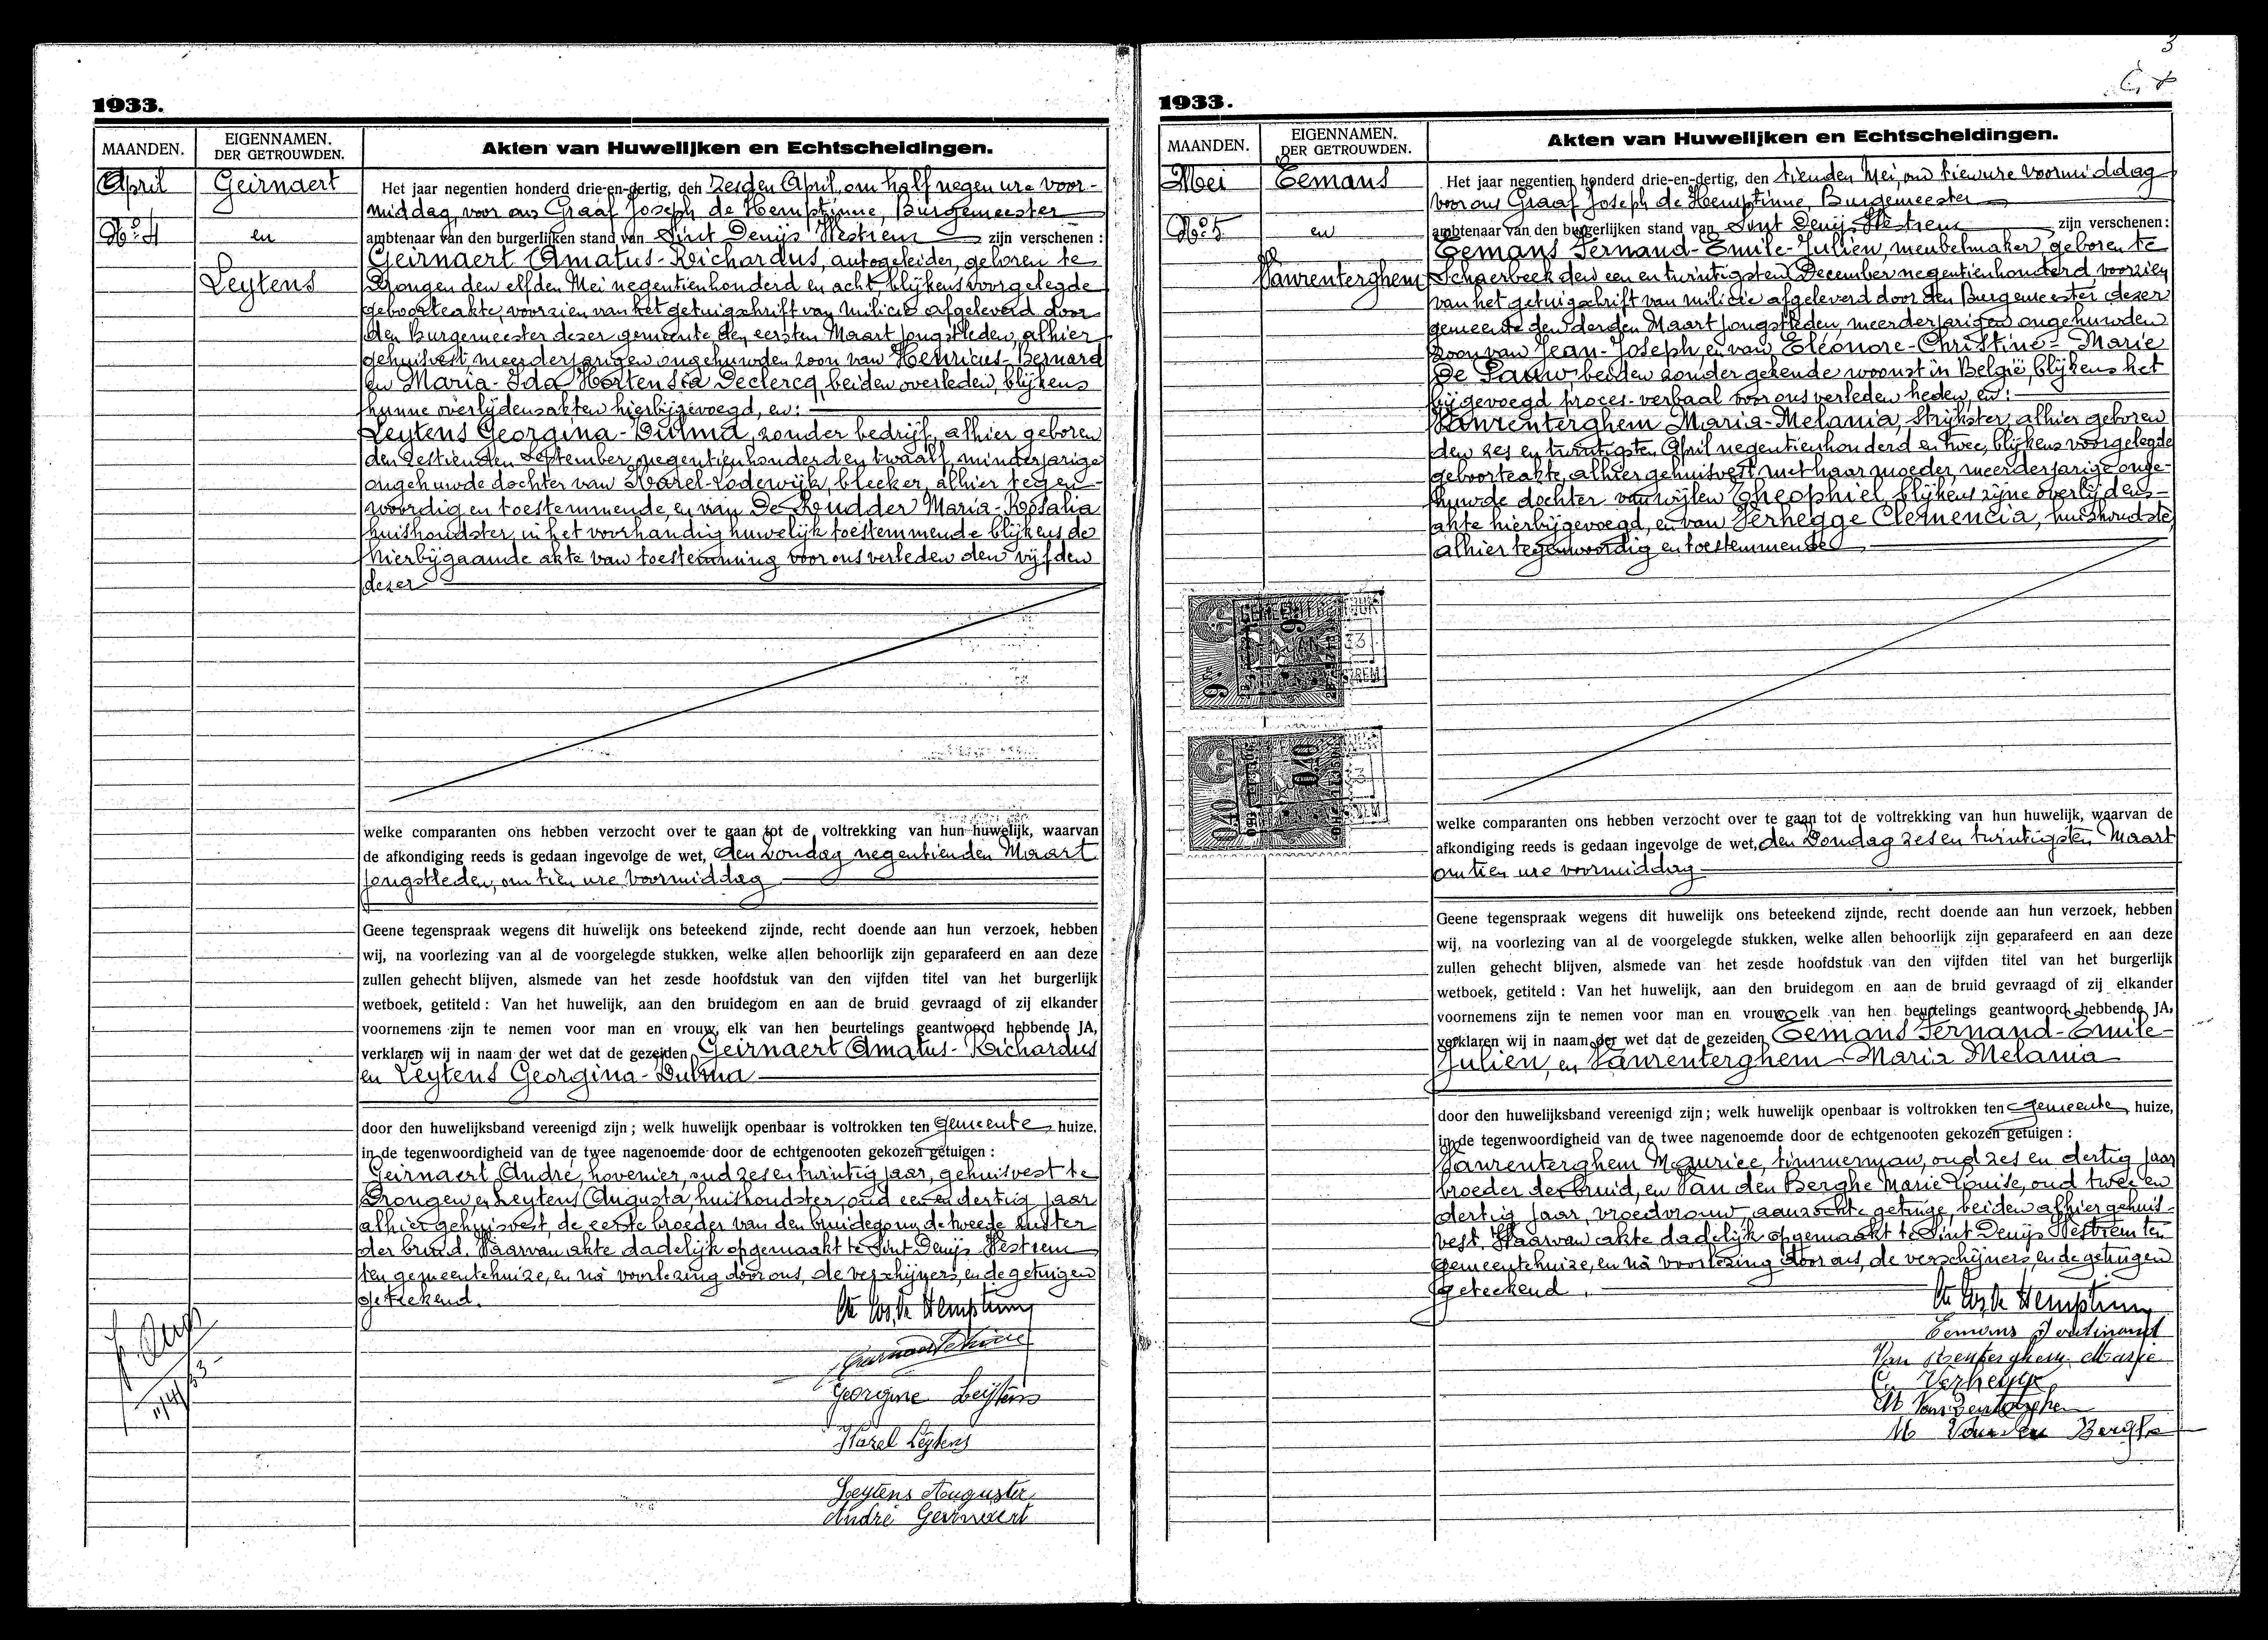 1933.
MAANDEN.
EIGENNAMEN.
DER GETROUWDEN.
Akten van Huwelijken en Echtscheidingen.
April
Nº 4
Geirnaert
en
Leytens
Het jaar negentien honderd drie-en-dertig, den Zesden April, om half negen ure voor-
middag, voor ons Graaf Joseph de Hemptinne, Burgemeester
ambtenaar van den burgerlijken stand van Sint Denijs Westrem zijn verschenen :
Geirnaert Amatus-Richardus, autogeleider, geboren te
Drongen den elfden Mei negentienhonderd en acht blijkens voorgelegde
geboorteakte, voorzien van het getuigschrift van Milicie afgeleverd door
den Burgemeester dezer gemeente den eersten Maart jongstleden, alhier
gehuisvest meerderjarigen ongehuwden zoon van Henricus-Bernard
en Maria-Ida Hortensia Declercq, beiden overleden, blijkens
hunne overlijdensakten hierbijgevoegd, en:
Leytens Georgina-Dulma, zonder bedrijf, alhier geboren
den zestienden September negentienhonderd en twaalf, minderjarige
ongehuwde dochter van Karel-Lodewijk, bleeker, alhier tegen-
woordig en toestemmende, en van De Rudder Maria-Rosalia
huishoudster, in het voorhandig huwelijk toestemmende blijkens de
hierbijgaande akte van toestemming voor ons verleden den vijfden
dezer
welke comparanten ons hebben verzocht over te gaan tot de voltrekking van hun huwelijk, waarvan
de afkondiging reeds is gedaan ingevolge de wet, den Zondag negentienden Maart
jongstleden, om tien ure voormiddag
Geene tegenspraak wegens dit huwelijk ons beteekend zijnde, recht doende aan hun verzoek, hebben
wij, na voorlezing van al de voorgelegde stukken, welke allen behoorlijk zijn geparafeerd en aan deze
zullen gehecht blijven, alsmede van het zesde hoofdstuk van den vijfden titel van het burgerlijk
wetboek, getiteld : Van het huwelijk, aan den bruidegom en aan de bruid gevraagd of zij elkander
voornemens zijn te nemen voor man en vrouw, elk van hen beurtelings geantwoord hebbende JA,
verklaren wij in naam der wet dat de gezeiden Geirnaert Amatus-Richardus
en Leytens Georgina-Dulma
door den huwelijksband vereenigd zijn ; welk huwelijk openbaar is voltrokken ten Gemeente huize,
in de tegenwoordigheid van de twee nagenoemde door de echtgenooten gekozen getuigen :
Geirnaert André, hovenier, oud zes en twintig jaar, gehuisvest te
Drongen, en Leytens Augusta, huishoudster, oud een en dertig jaar
alhier gehuisvest, de eerste broeder van den bruidegom, de tweede zuster
der bruid. Waarvan akte dadelijk opgemaakt te Sint Denijs Westrem
ten gemeentehuize, en na voorlezing door ons, de verschijners, en de getuigen
geteekend.
Georgine Leijtens
Karel Leytens
Leytens Augusta
André Geirnaert
3
1933.
MAANDEN.
EIGENNAMEN.
DER GETROUWDEN.
Akten van Huwelijken en Echtscheidingen.
Mei
Nº 5
Eemans
en
Vanrenterghem
Het jaar negentien honderd drie-en-dertig, den tienden Mei, om tien ure voormiddag
voor ons Graaf Joseph de Hemptinne, Burgemeester
ambtenaar van den burgerlijken stand van Sint Denijs Westrem zijn verschenen :
Eemans Fernand-Emile-Julien, meubelmaker, geboren te
Schaerbeek den een en twintigsten December negentienhonderd, voorzien
van het getuigschrift van milicie afgeleverd door den Burgemeester dezer
gemeente den derden Maart jongstleden, meerderjarigen ongehuwden
zoon van Jean-Joseph, en van Eléonore-Christine-Marie
De Pauw, beiden zonder gekende woonst in België, blijkens het
bijgevoegd proces-verbaal voor ons verleden heden, en:
Vanrenterghem Maria-Melania, strijkster, alhier geboren
den zes en twintigsten April negentienhonderd en twee, blijkens voorgelegde
geboorteakte, alhier gehuisvest met haar moeder, meerderjarige onge-
huwde dochter van wijlen Theophiel, blijkens zijne overlijdens-
akte hierbijgevoegd, en van Verhegge Clemencia, huishoudster
alhier tegenwoordig en toestemmende
welke comparanten ons hebben verzocht over te gaan tot de voltrekking van hun huwelijk, waarvan de
afkondiging reeds is gedaan ingevolge de wet, den Zondag zes en twintigsten Maart
om tien ure voormiddag
Geene tegenspraak wegens dit huwelijk ons beteekend zijnde, recht doende aan hun verzoek, hebben
wij, na voorlezing van al de voorgelegde stukken, welke allen behoorlijk zijn geparafeerd en aan deze
zullen gehecht blijven, alsmede van het zesde hoofdstuk van den vijfden titel van het burgerlijk
wetboek, getiteld : Van het huwelijk, aan den bruidegom en aan de bruid gevraagd of zij elkander
voornemens zijn te nemen voor man en vrouw, elk van hen beurtelings geantwoord hebbende JA,
verklaren wij in naam der wet dat de gezeiden Eemans Fernand-Emile-
Julien, en Vanrenterghem Maria Melania
door den huwelijksband vereenigd zijn ; welk huwelijk openbaar is voltrokken ten Gemeente huize,
in de tegenwoordigheid van de twee nagenoemde door de echtgenooten gekozen getuigen :
Vanrenterghem Maurice, timmerman, oud zes en dertig jaar
broeder der bruid, en Van den Berghe Marie Louise, oud twee en
dertig jaar, vroedvrouw, aanzochte getuige, beiden alhier gehuis-
vest. Waarvan akte dadelijk opgemaakt te Sint Denijs Westrem ten
gemeentehuize, en na voorlezing door ons, de verschijners, en de getuigen
geteekend.
Eemans Ferdinand
Van Renterghem Marie
C. Verhegge
M Van Renterghem
M Van den Berghe